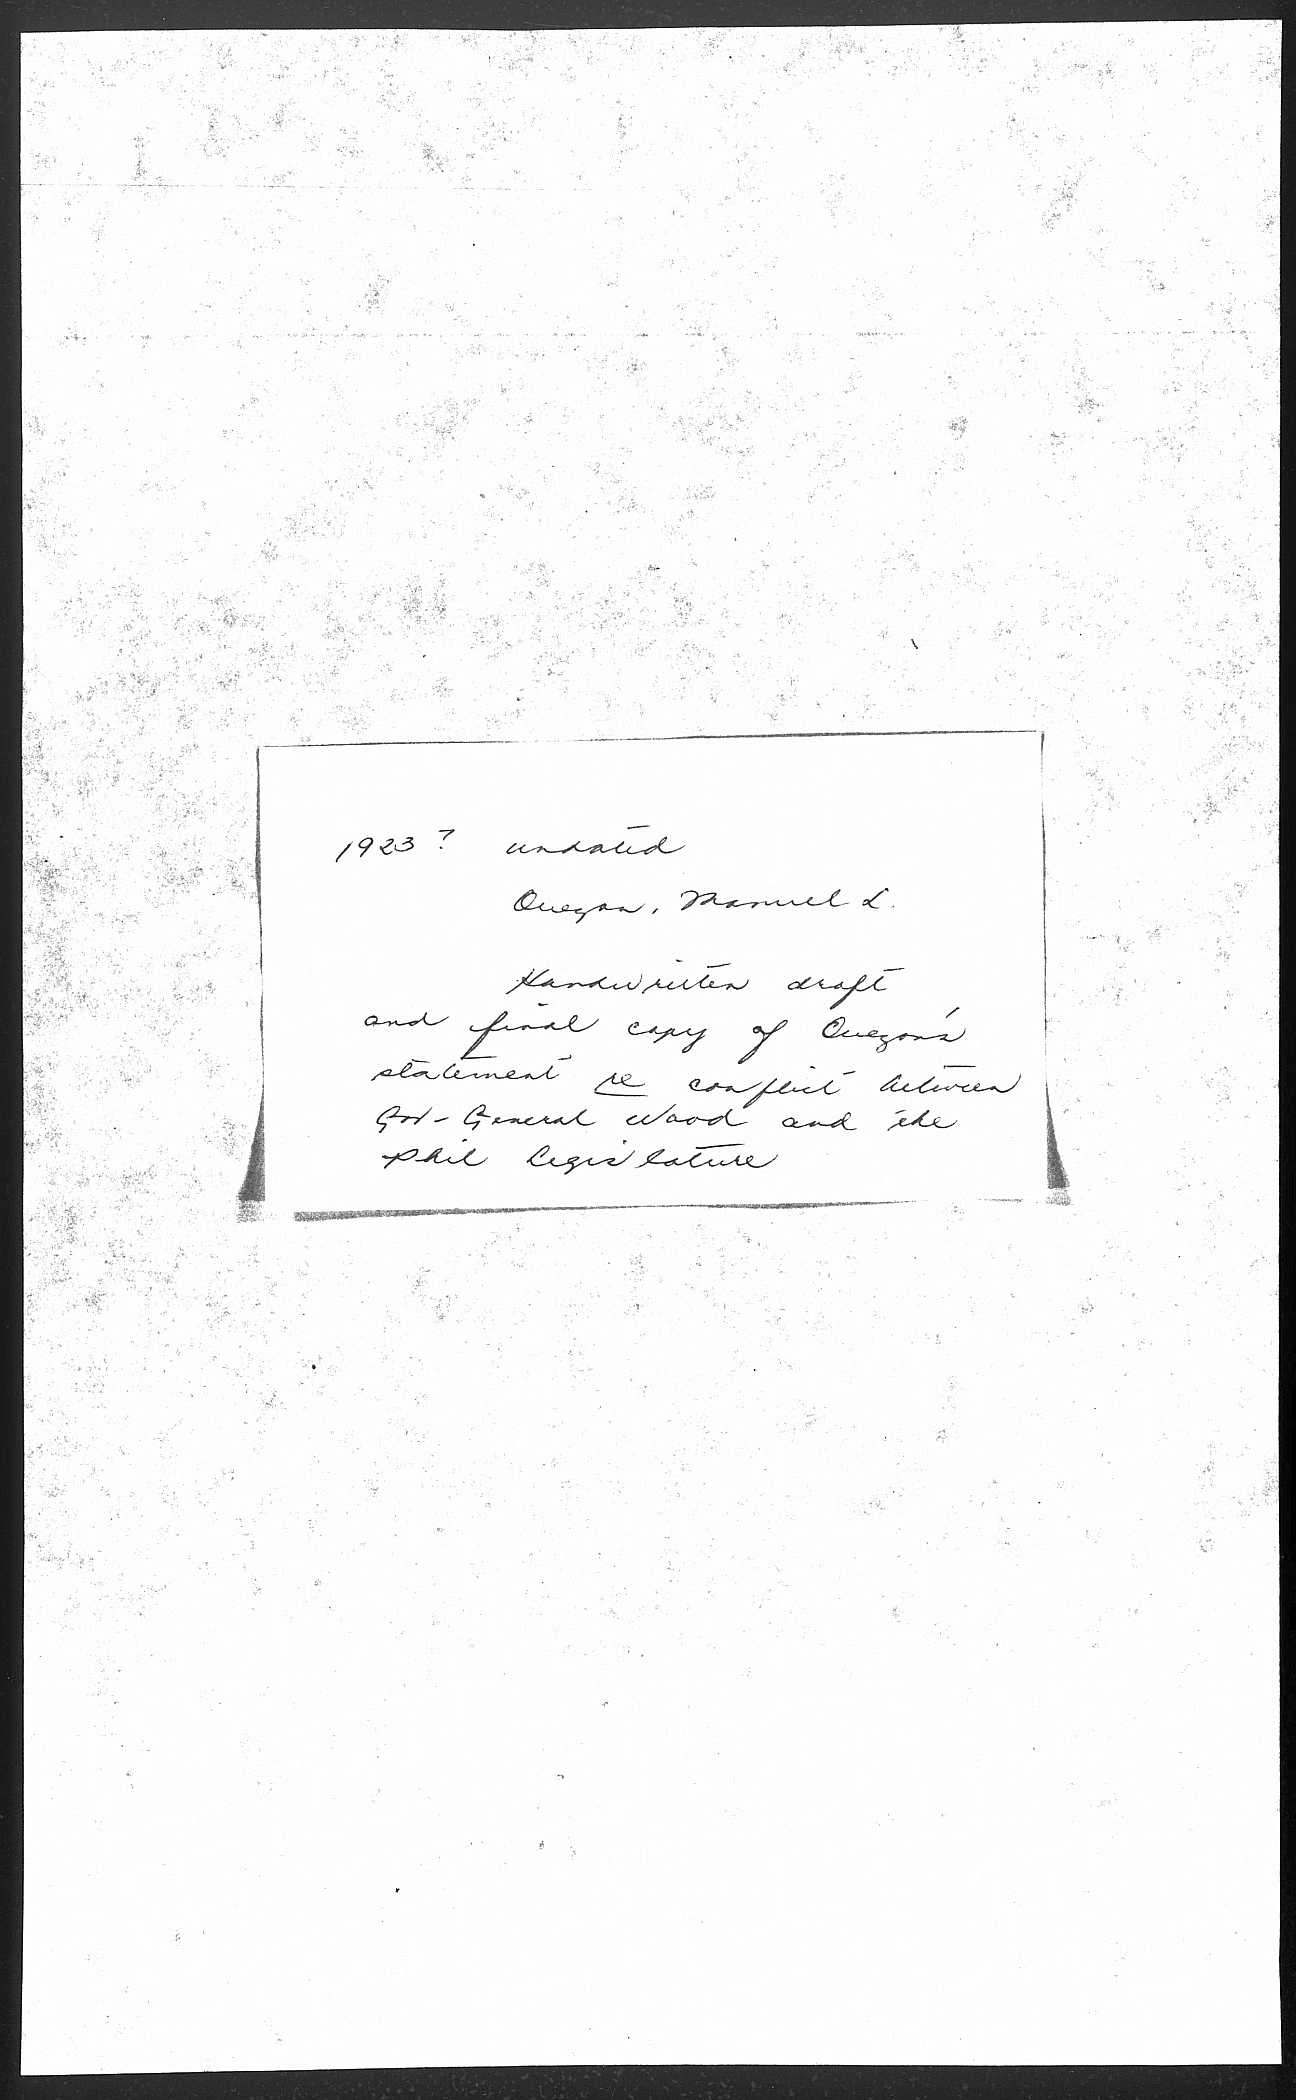 1923 ? undated
Quezon, Manuel L.
Handwritten draft
and final copy of Quezon's
statement re conflict between
Gov-General Wood and the
Phil Legislature